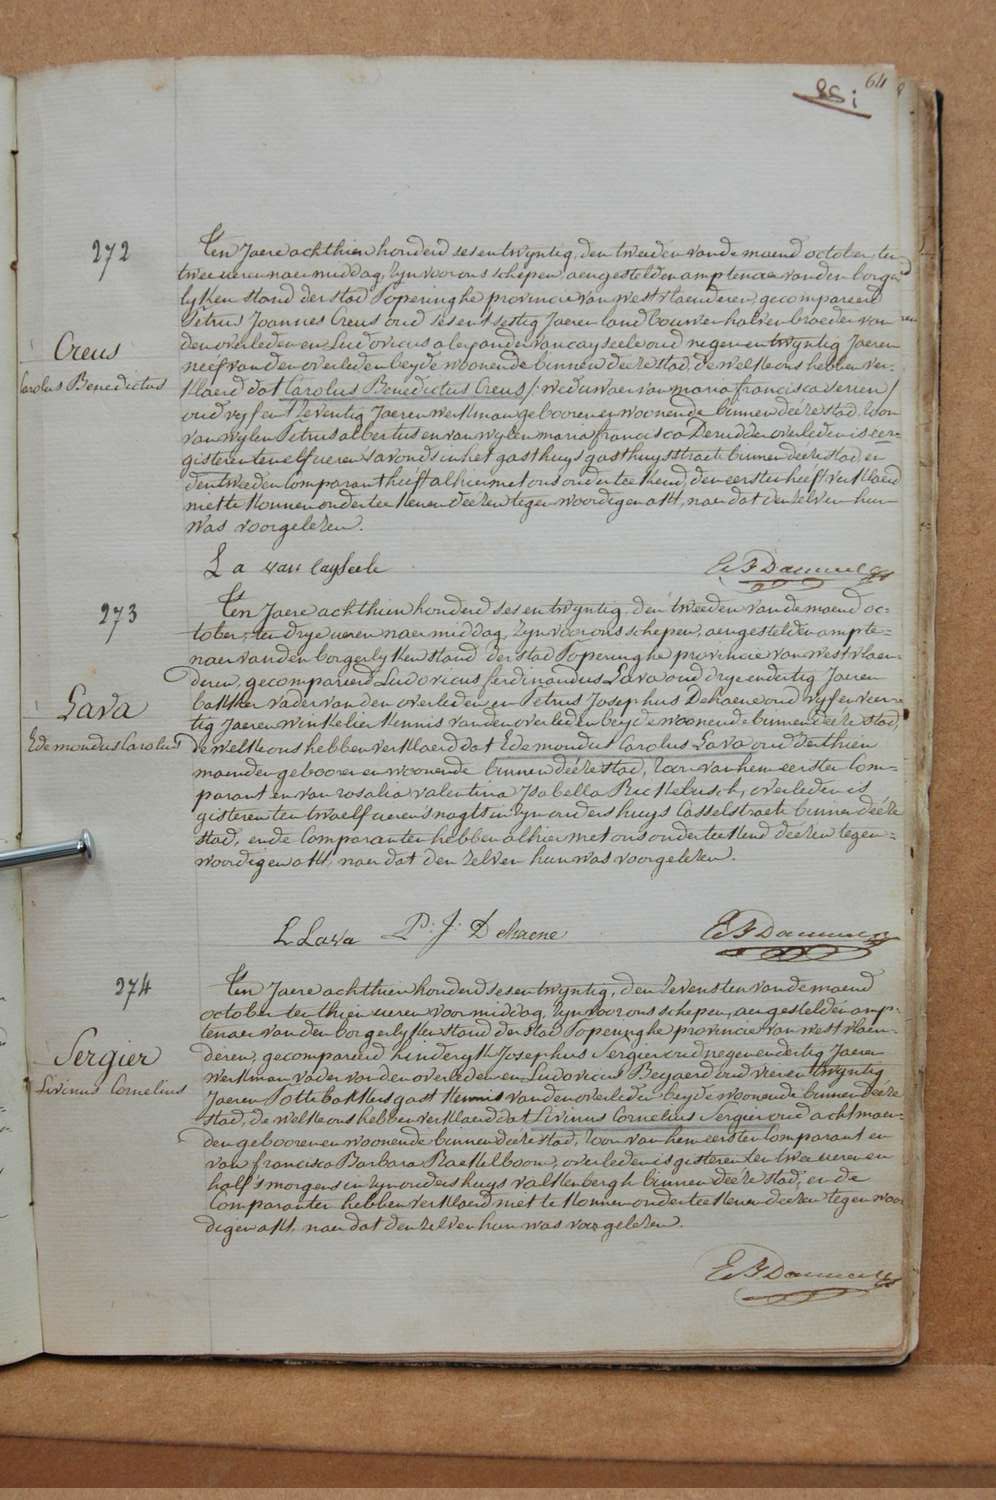 64
272
Ten Jaere achthien honderd ses en twyntig, den tweeden van de maend october, ten
twee ueren naer middag, zyn voor ons schepen, aengestelden amptenaer van den borger
lyken stand der stad Poperinghe provincie van westvlaenderen, gecompareerd
Petrus Joannes Creus oud ses en t'sestig Jaeren landbouwer halven broeder van
den overleden en Ludovicus alexander van cayseele oud negen en twyntig Jaeren
neef van den overleden beyde woonende binnen deéze stad, de welke ons hebben ver-
Creus
Carolus Benedictus
klaerd dat Carolus Benedictus Creus /: weduwaer van maria francisca /
oud vyf en t'zeventig Jaeren werkman gebooren en woonende binnen deéze stad, zoon
van wylen Petrus albertus en van wylen maria francisca Deridder overleden is eer-
gisteren ten elf ueren s'avonds in het gasthuys gasthuysstraete binnen deéze stad en
den tweeden Comparant heéft alhier met ons onderteekend, den eersten heéft verklaerd
niet te konnen onderteekenen deézen tegenwoordigen akt, naer dat den zelven hun
was voorgelezen.
L a van Cayseele
273
Ten Jaere achthien honderd ses en twyntig, den tweeden van de maend oc-
tober, ten drye ueren naer middag, zyn voor ons schepen, aengestelden ampte-
naer van den borgerlyken stand der stad Poperinghe provincie van westvlaen-
deren, gecompareerd Ludovicus ferdinandus Lava oud drye en dertig Jaeren
bakker vader van den overleden en Petrus Josephus Dehaene oud vyf en veer-
Lava
tig Jaeren winkelier kennis van den overleden beyde woonende binnen deéze stad,
Edemondus Carolus
de welke ons hebben verklaerd dat Edemondus Carolus Lava oud derthien
maenden gebooren en woonende binnen deéze stad, zoon van hem eersten Com-
parant en van rosalia valentina Isabella Rickebusch, overleden is
gisteren ten twaelf ueren s'nagts in zyn ouders huys Casselstraete binnen deéze
stad, en de Comparanten hebben alhier met ons onderteekend deézen tegen-
woordigen akt, naer dat den zelven hun was voorgelezen.
L Lava P: J: Dehaene
274
Ten Jaere achthien honderd ses en twyntig, den zevensten van de maend
october ten thien ueren voor middag, zyn voor ons schepen, aengestelden amp-
tenaer van den borgerlyken stand der stad Poperinghe provincie van westvlaen-
deren, gecompareerd hinderyk Josephus Sergier oud negen en dertig Jaeren
Sergier
werkman vader van den overleden en Ludovicus Beyaerd oud vier en twyntig
Livinus Cornelius
Jaeren Pottebakkers gast kennis van den overleden beyde woonende binnen deéze
stad, de welke ons hebben verklaerd dat Livinus Cornelius Sergier oud acht maen-
den gebooren en woonende binnen deéze stad, zoon van hem eersten Comparant en
van francisca Barbara Raekelboom, overleden is gisteren ten twee ueren en
half s'morgens in zyn ouders huys valkenbergh binnen deéze stad, en de
Comparanten hebben verklaerd niet te konnen onderteekenen deézen tegenwoor
digen akt, naer dat den zelven hun was voorgelezen.